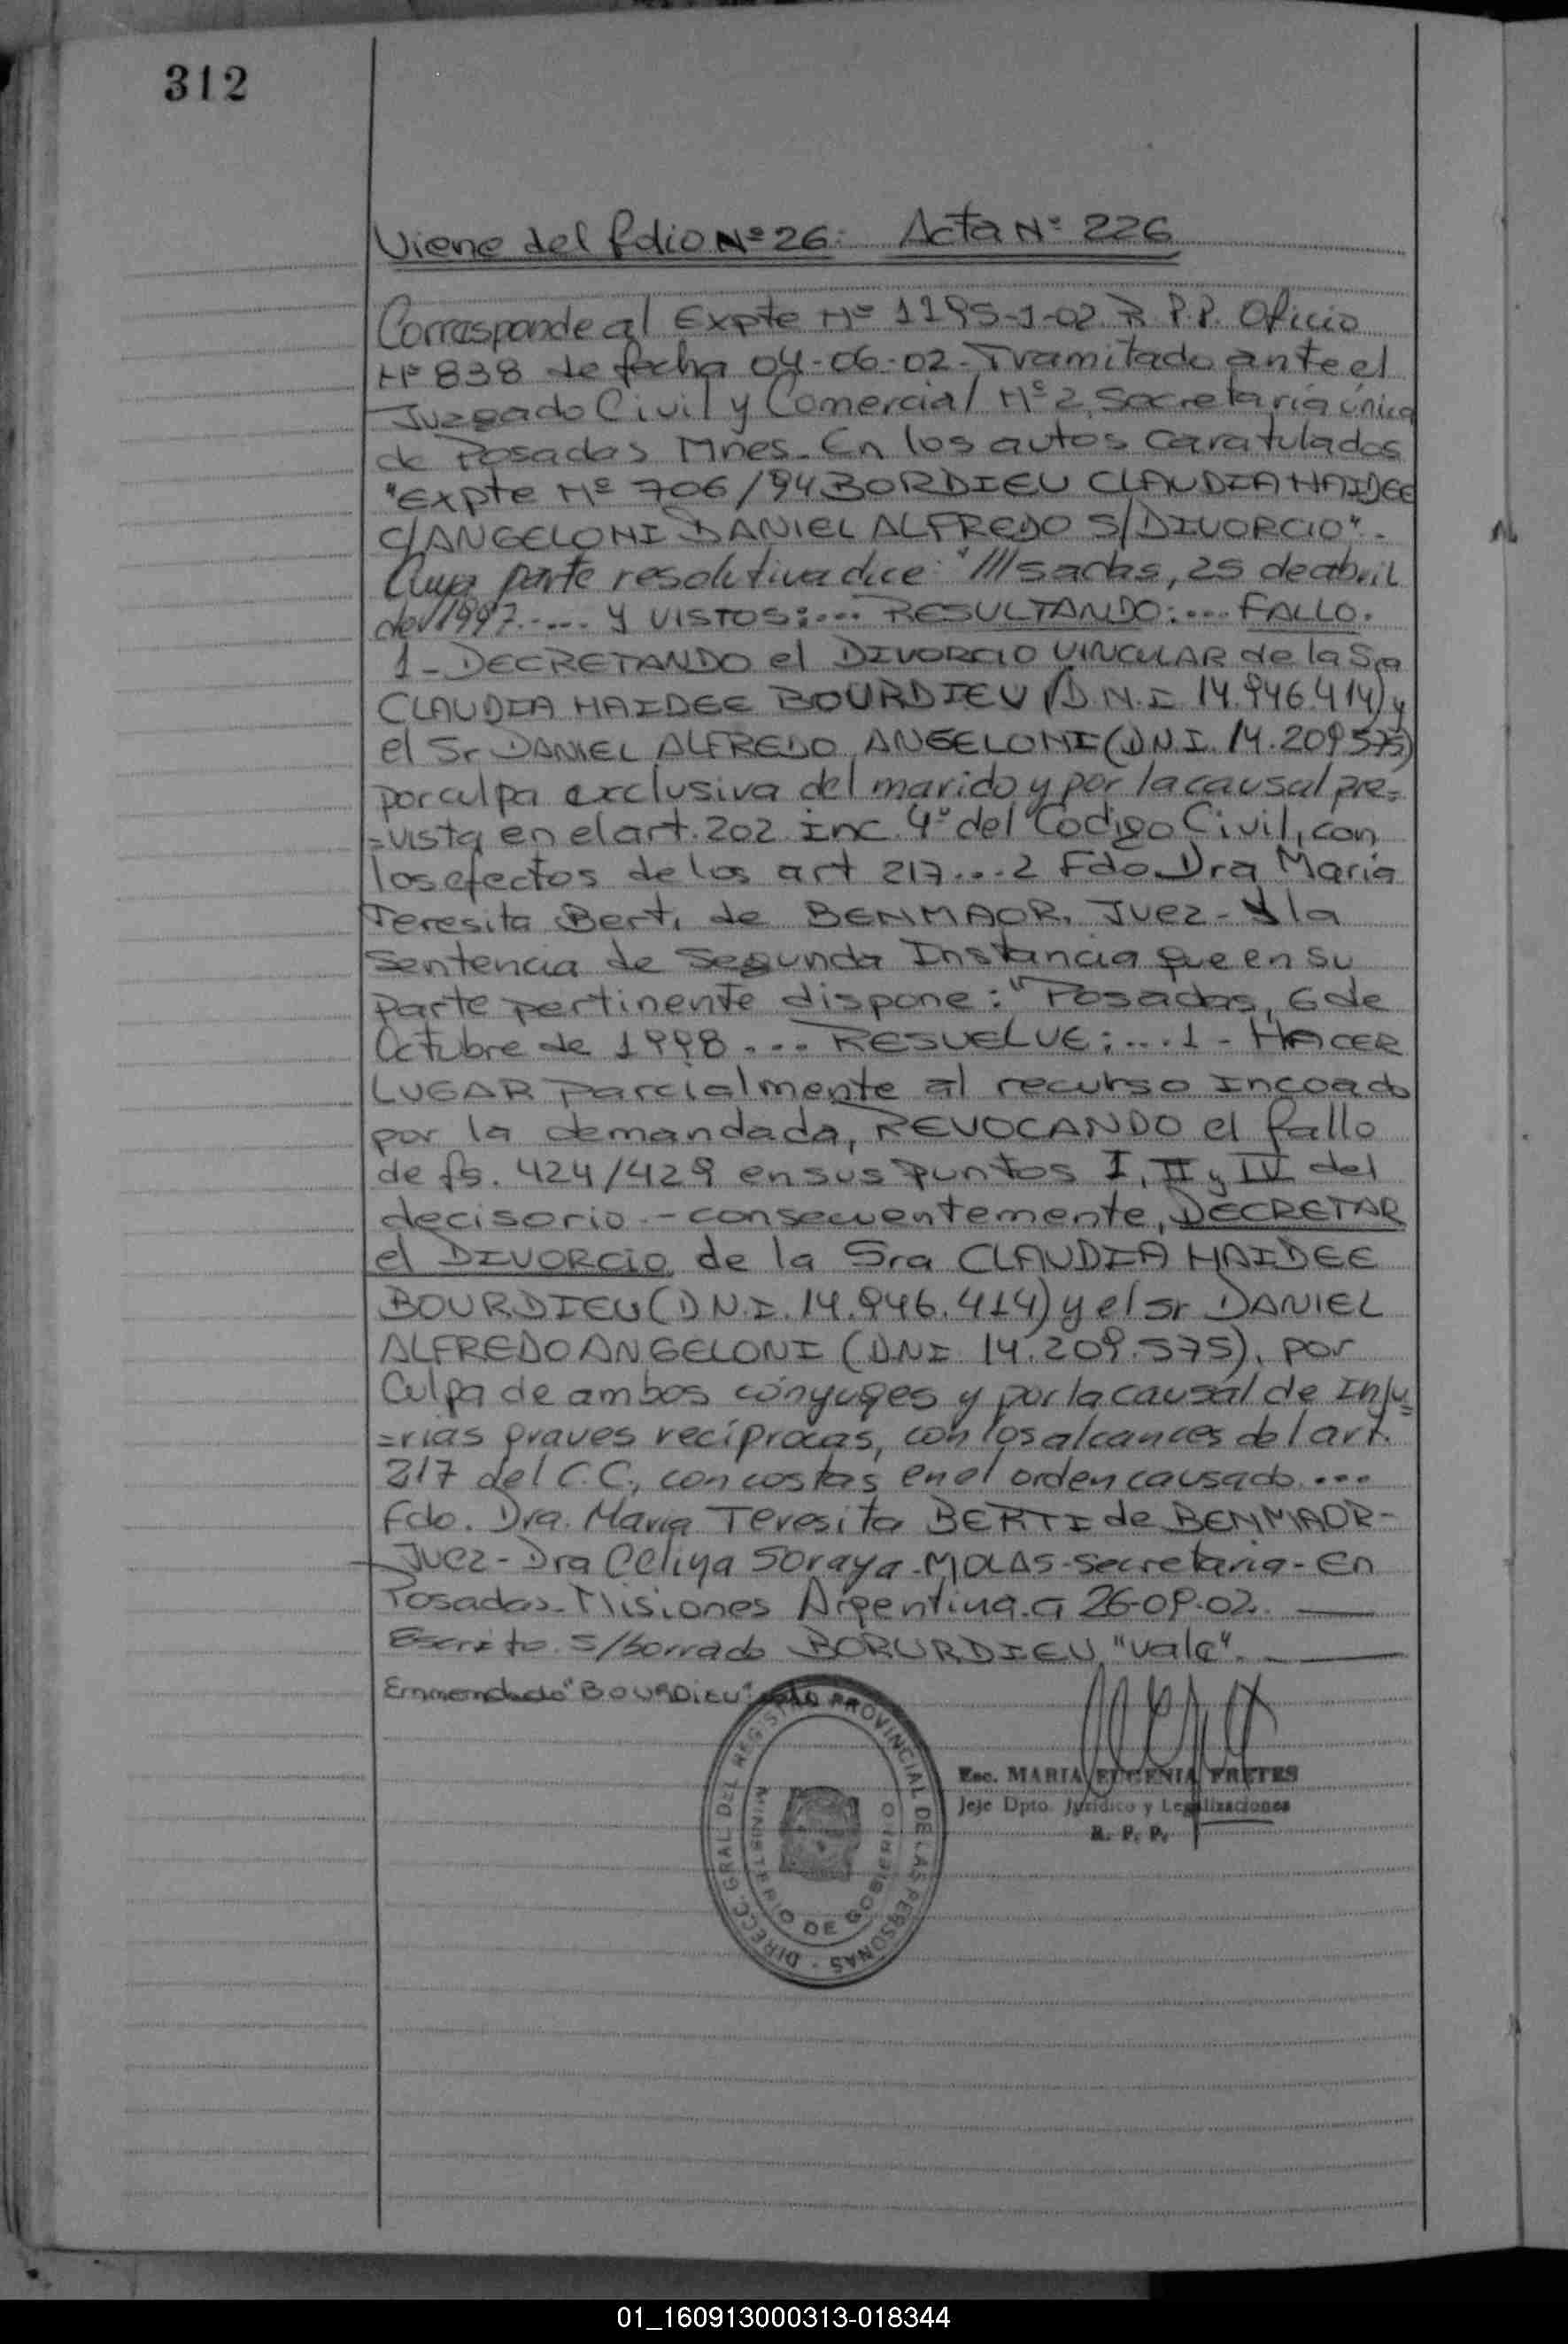 312
Viene del folio Nº 26: Acta Nº 226
Corresponde al Expte Nº 1195-1-02 R.P.P. Oficio
Nº 838 de fecha 04-06-02- Tramitado ante el
Juzgado Civil y Comercial Nº 2 Secretaría única
de Posadas Mnes. En los autos caratulados
"Expte Nº 706/94 BORDIEU CLAUDIA HAIDEE
C/ANGELONI DANIEL ALFREDO S/DIVORCIO".-
Cuya parte resolutiva dice: "///sadas, 25 de abril
del 1997..... Y VISTOS:... RESULTANDO:... FALLO.
1- DECRETANDO el DIVORCIO VINCULAR de la Sra
CLAUDIA HAIDEE BOURDIEU (D.N.I 14.946.414) y
el Sr DANIEL ALFREDO ANGELONI (D.N.I. 14.209575)
por culpa exclusiva del marido y por la causal pre=
=vista en el art. 202 inc. 4º del Codigo Civil, con
los efectos de los art 217...2 Fdo Dra Maria
Teresita Berti de BENMAOR, Juez- Y la
Sentencia de Segunda Instancia que en su
parte pertinente dispone: "Posadas, 6 de
Octubre de 1998... RESUELVE:...1- HACER
LUGAR parcialmente al recurso incoado
por la demandada, REVOCANDO el fallo
de fs. 424/429 en sus puntos I, II y IV del
decisorio.- consecuentemente, DECRETAR
el DIVORCIO de la Sra CLAUDIA HAIDEE
BOURDIEU (D.N.I. 14.946.414) y el Sr DANIEL
ALFREDO ANGELONI (DNI 14.209.575), por
Culpa de ambos cónyuges y por la causal de Inju=
=rias graves recíprocas, con los alcances del art.
217 del C.C., con costas en el orden causado....
Fdo. Dra. Maria Teresita BERTI de BENMAOR-
Juez- Dra Celina Soraya MOLAS- Secretaria- En
Posadas- Misiones Argentina. a 26-09-02.
Escrito s/borrado BORURDIEU "vale".
Enmendado "BOURDIEU" vale
DIRECC. GRAL. DEL REGISTRO PROVINCIAL DE LAS PERSONAS -
MINISTERIO DE GOBIERNO
Esc. MARIA EUGENIA FRETES
Jefe Dpto. Jurídico y Legalizaciones
R. P. P.
01_160913000313-018344